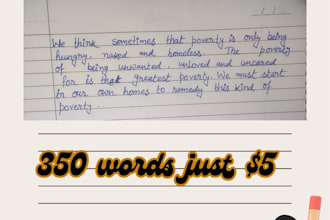 We think sometimes that poverty is only being
hungry, naked and homeless. The poverty
of being unwanted, unloved and uncared
for is that greatest poverty. We must start
in our own homes to remedy this kind of
poverty.
350 words just $5